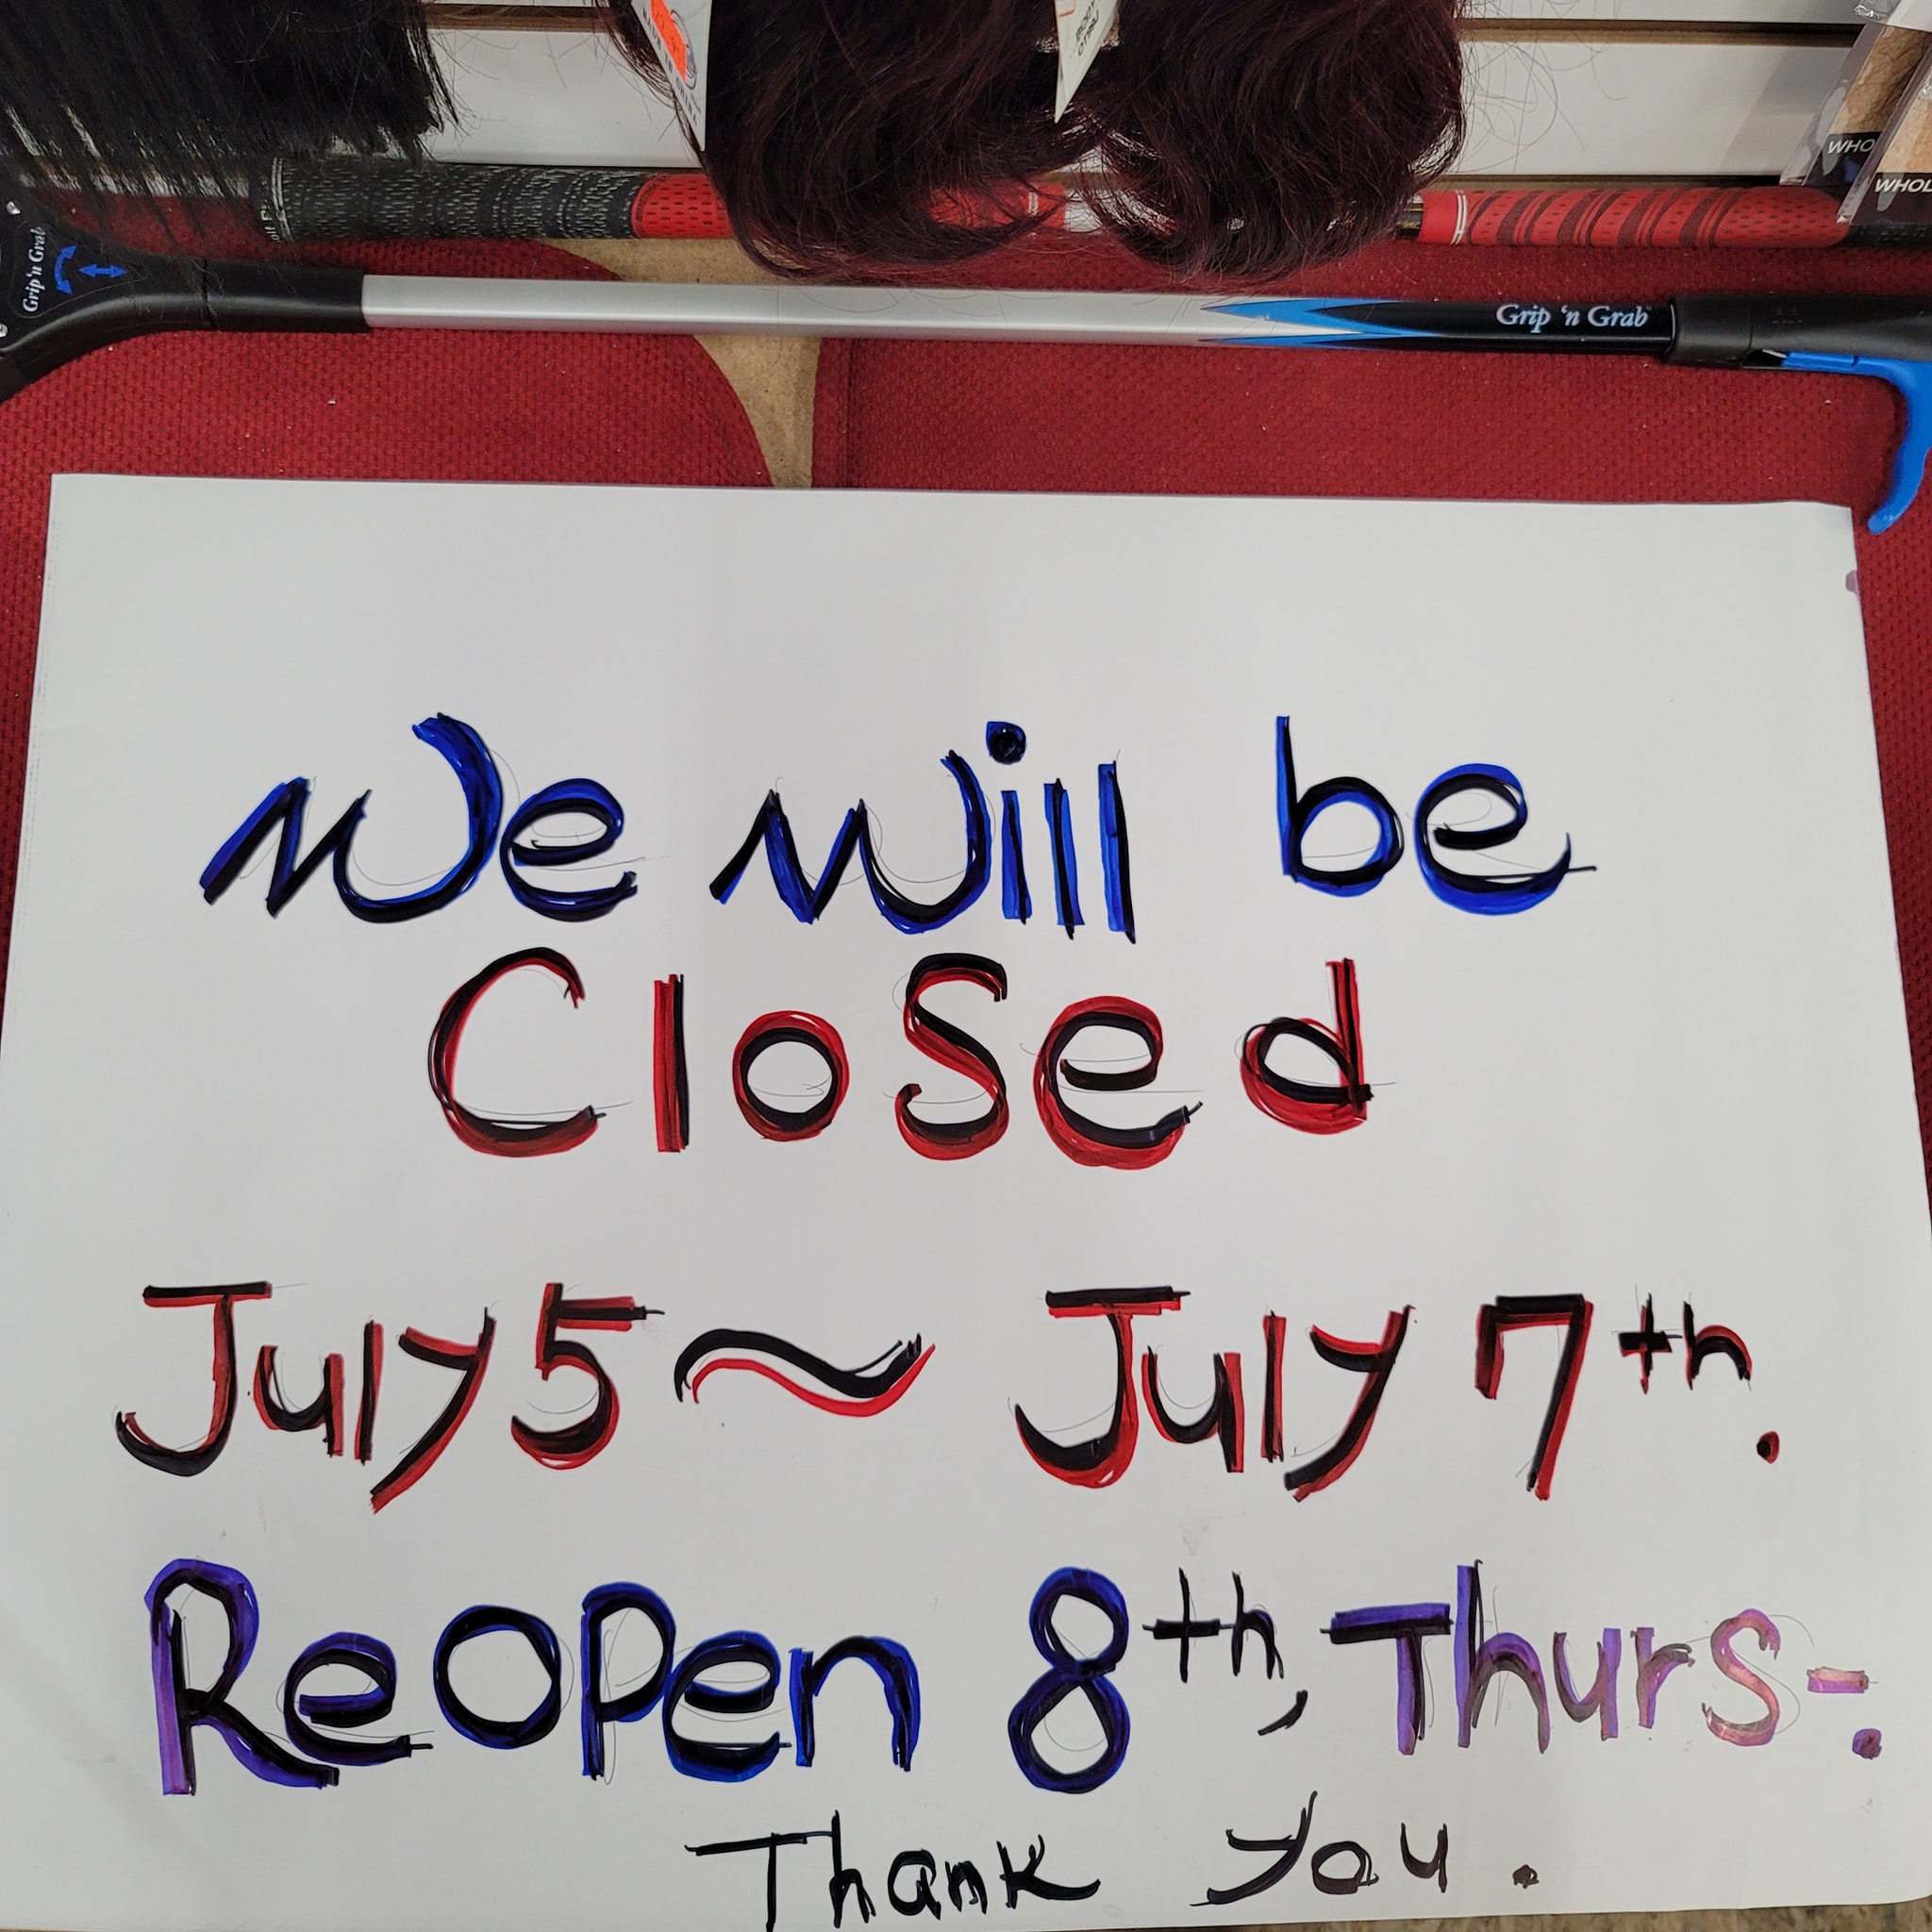 WHO
WHOL
Grip 'n Grab
Grip 'n Grab
We will be
Closed
July 5 ~ July 7th.
ReOpen 8th, Thurs-.
Thank you.